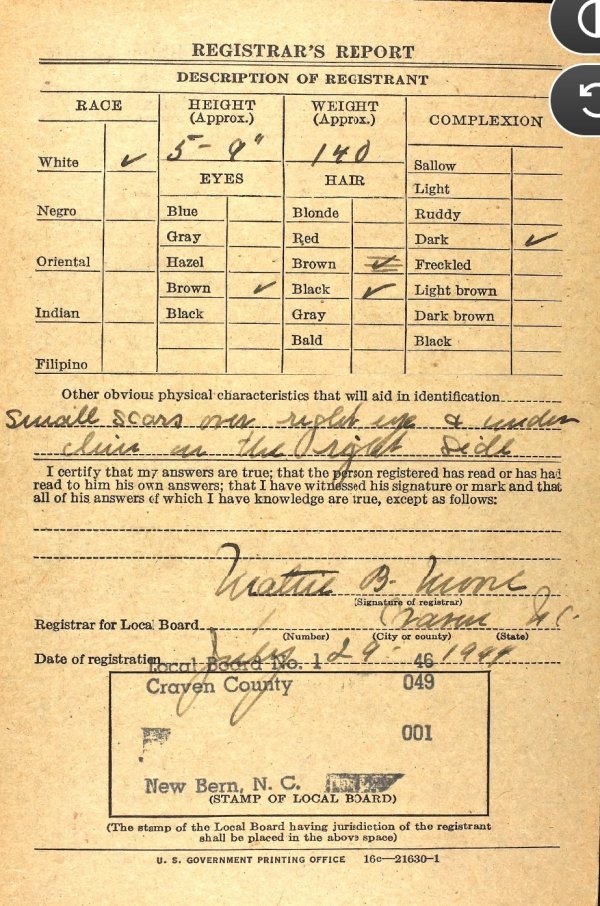 REGISTRAR'S REPORT
DESCRIPTION OF REGISTRANT
RACE
HEIGHT
(Approx.)
WEIGHT
(Approx.)
COMPLEXION
White ✓
5-9"
140
Sallow
EYES
HAIR
Light
Negro
Blue
Blonde
Ruddy
Gray
Red
Dark ✓
Oriental
Hazel
Brown ✓
Freckled
Brown ✓
Black ✓
Light brown
Indian
Black
Gray
Dark brown
Bald
Black
Filipino
Other obvious physical characteristics that will aid in identification
Small scars over right eye & under
chin on the right side
I certify that my answers are true; that the person registered has read or has had
read to him his own answers; that I have witnessed his signature or mark and that
all of his answers of which I have knowledge are true, except as follows:
Mattie B. Moore
(Signature of registrar)
Registrar for Local Board 1 Craven N.C.
(Number) (City or county) (State)
Date of registration July 29 1944
Local Board No. 1 46
Craven County 049
001
New Bern, N. C.
(STAMP OF LOCAL BOARD)
(The stamp of the Local Board having jurisdiction of the registrant
shall be placed in the above space)
U. S. GOVERNMENT PRINTING OFFICE 16c—21630-1